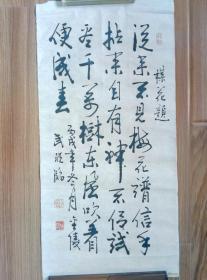 楳花題
從来不見梅花譜信手
拈来自有神不信試
看千萬樹東風吹著
便成春
丙戌年冬月金陵